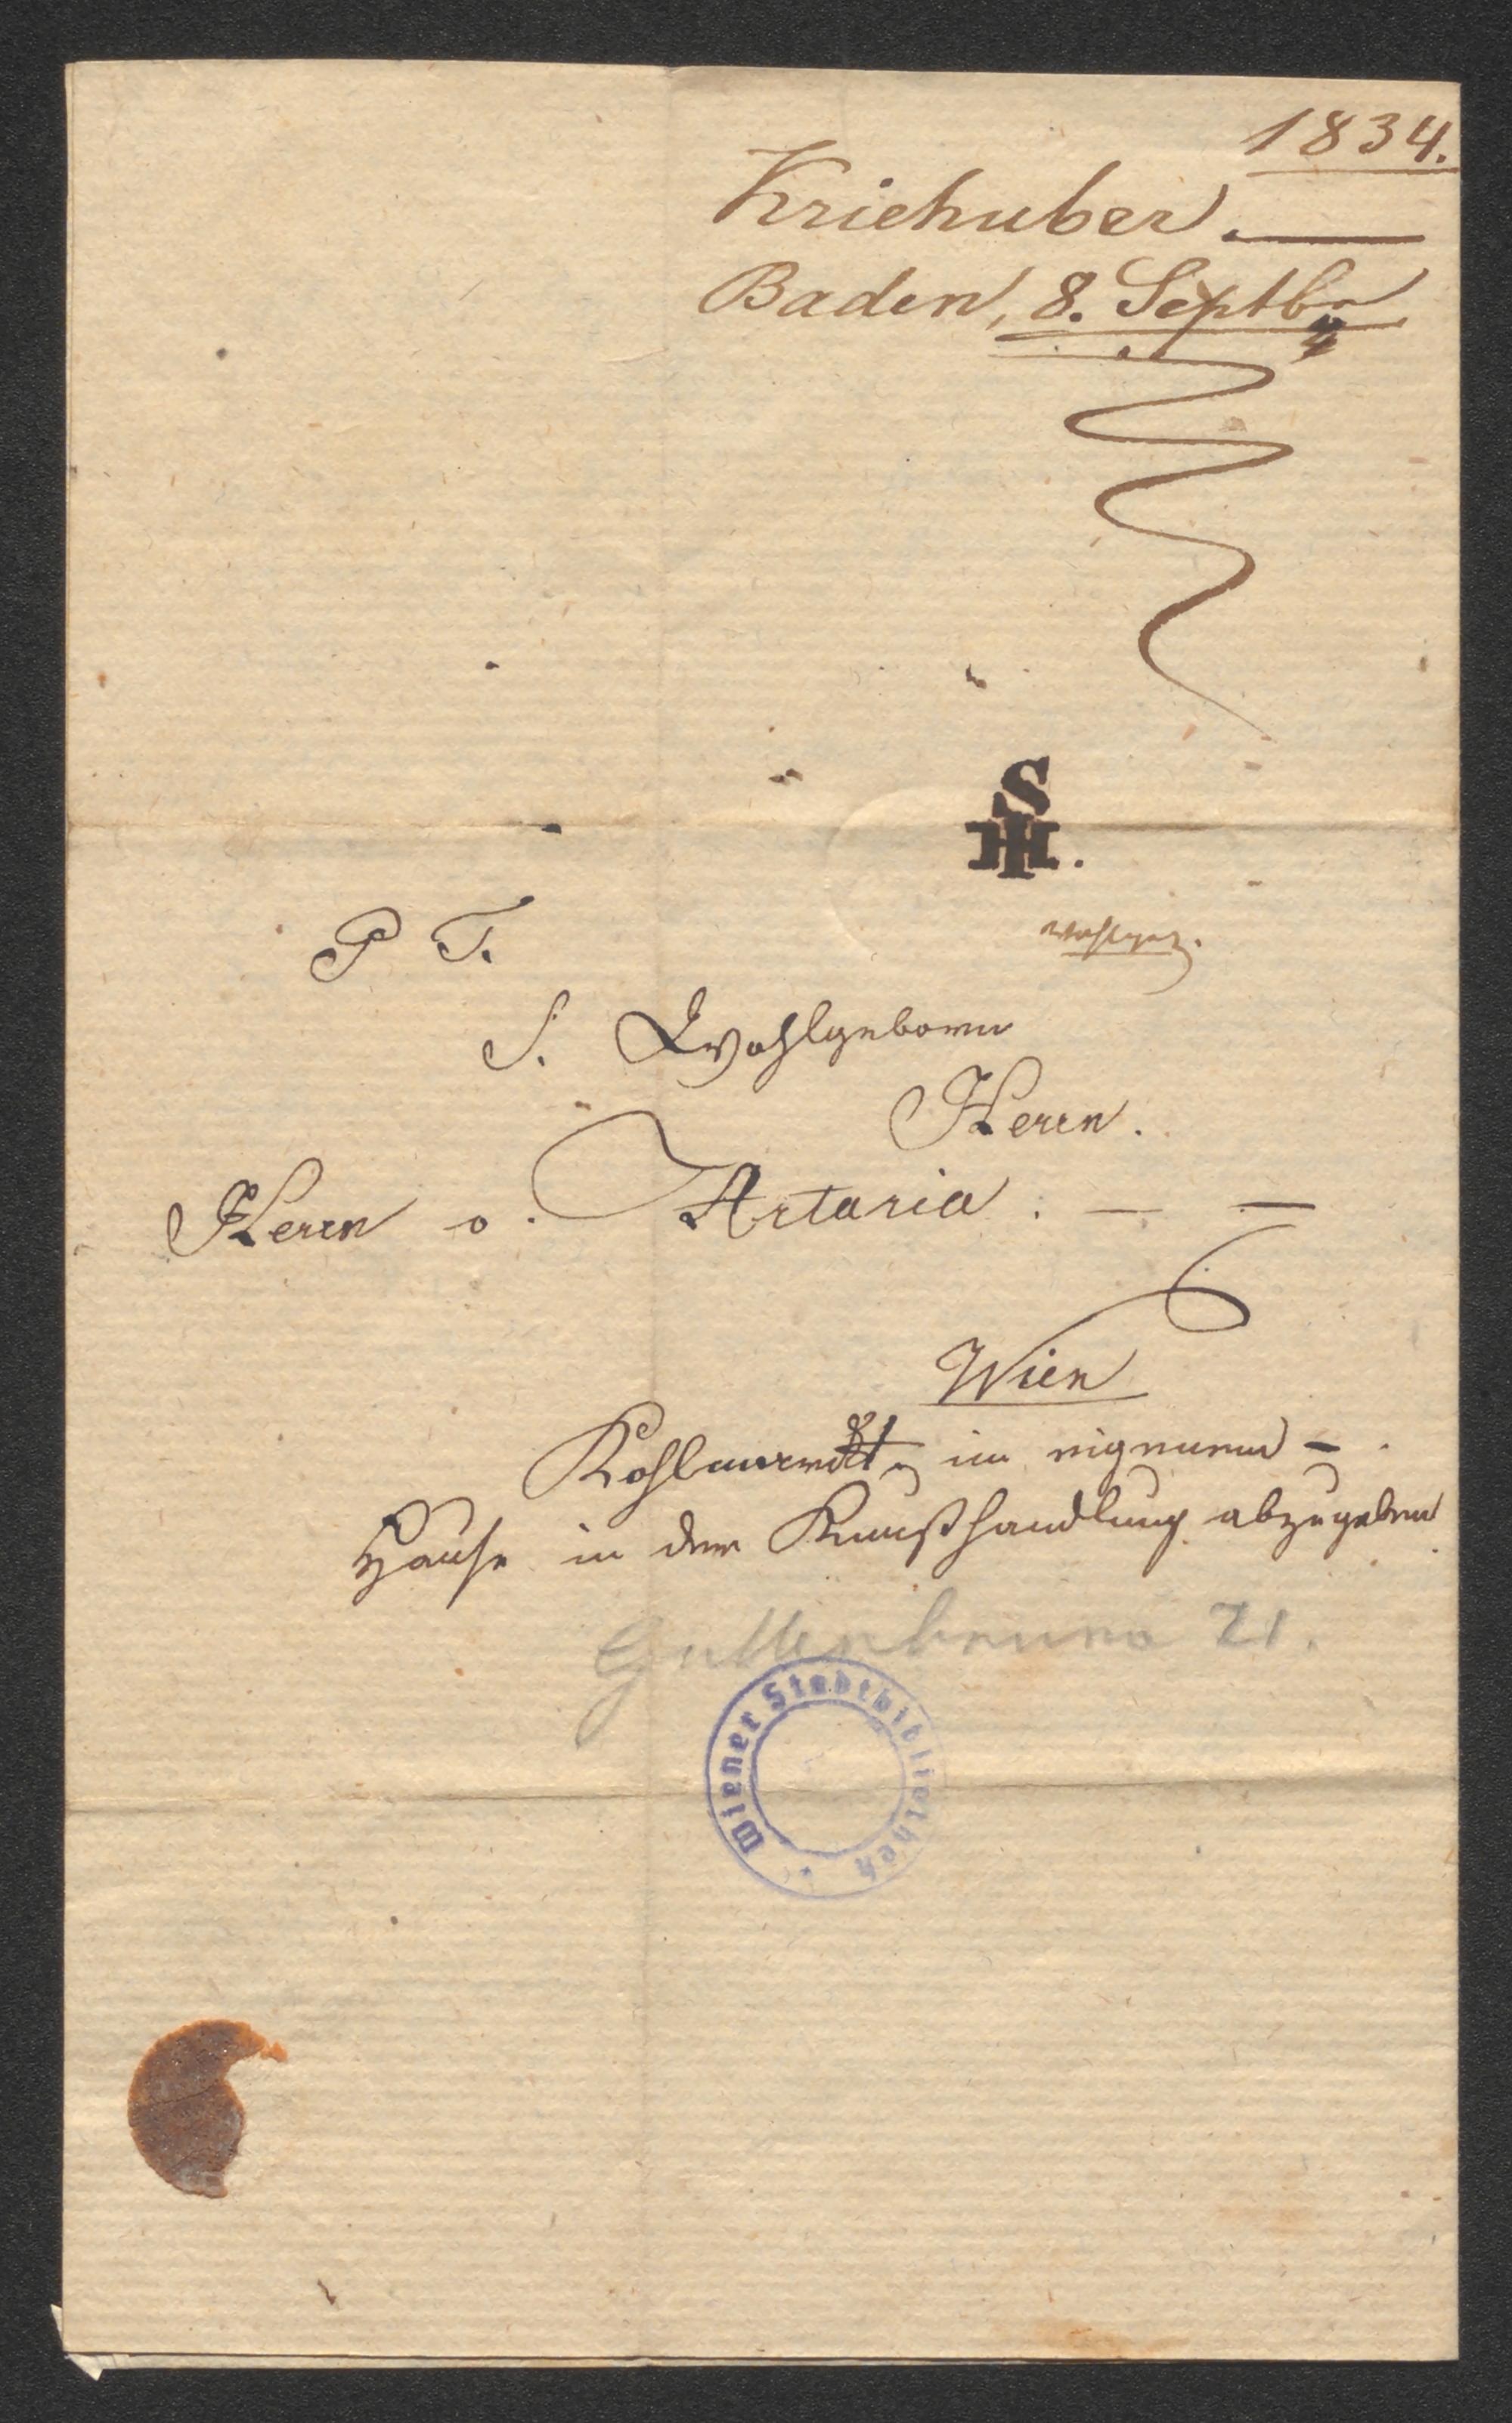 1834.
Kriehuber.
Baden, 8. Septbr
S
H
P. T.
S. Wohlgeborn
Herrn.
Herrn v. Artaria : — —
Wien
Kohlmarkt im eigenen
Hause in der Kunsthandlung abzugeben
Guttenbrunn 21.
Wiener Stadtbibliothek